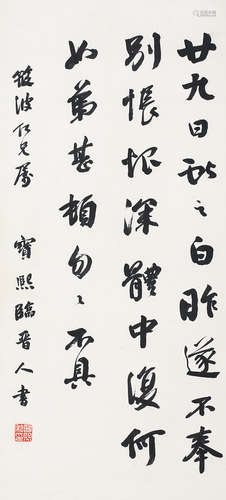 廿九日獻之白昨遂不奉
別悵恨深體中復何
如弟甚頓勿々不具
筱波仁兄屬 寶熙臨晉人書